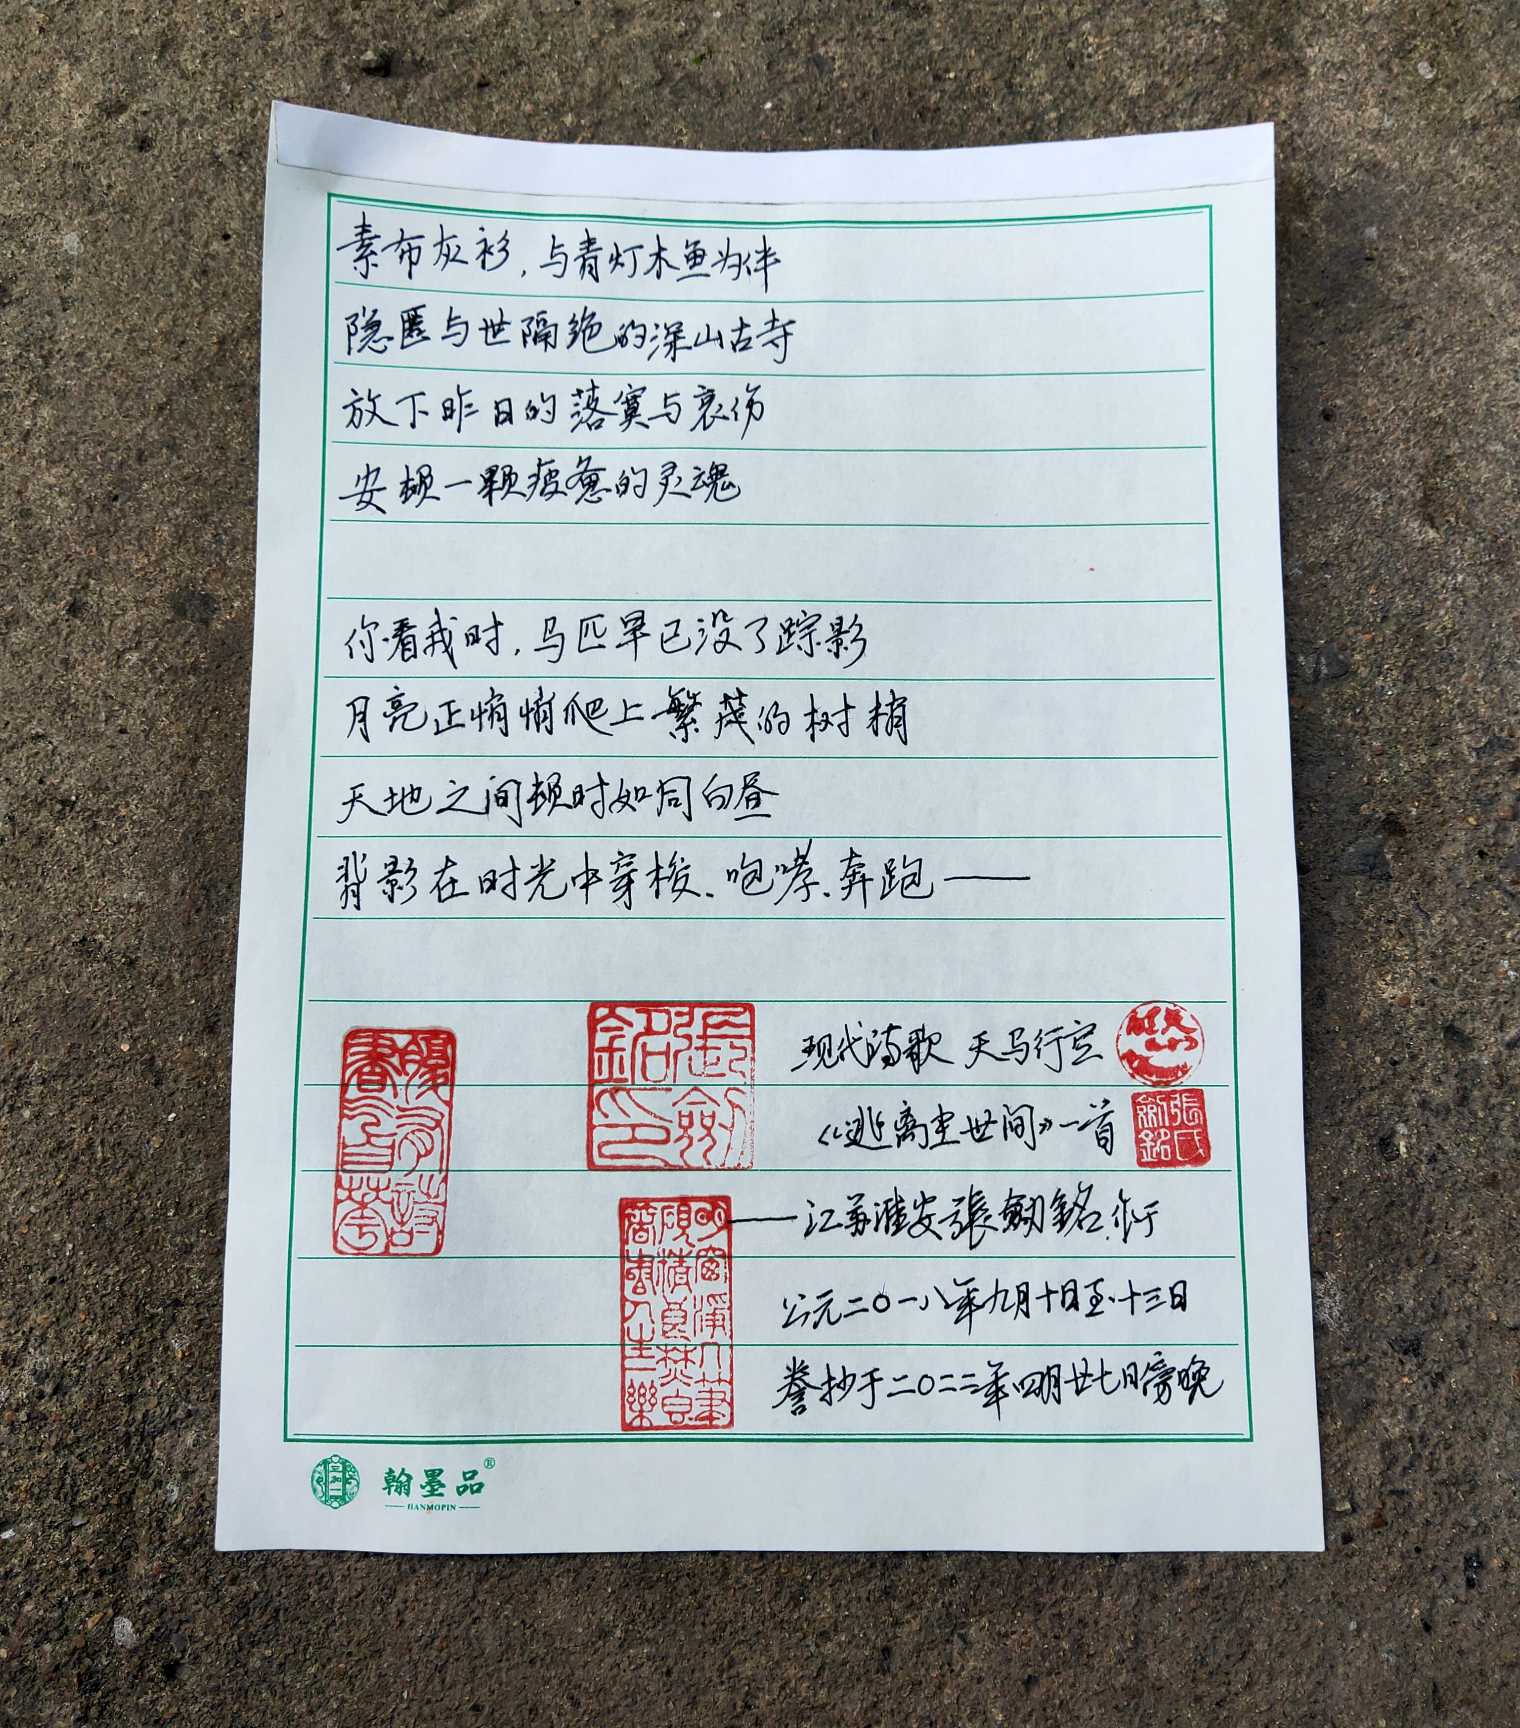 素布灰衫，与青灯木鱼为伴
隐匿与世隔绝的深山古寺
放下昨日的落寞与哀伤
安顿一颗疲惫的灵魂
你看我时，马匹早已没了踪影
月亮正悄悄爬上繁茂的树梢
天地之间顿时如同白昼
背影在时光中穿梭、咆哮、奔跑——
现代诗歌 天马行空
《逃离尘世间》一首
——江苏淮安張劍銘作于
公元二〇一八年九月十日至十三日
誊抄于二〇二二年四月廿七日傍晚
張劍銘印
張氏劍銘
腹有詩書氣自華
明窗淨几筆硯精良焚香著書人生一樂
翰墨品®
HANMOPIN